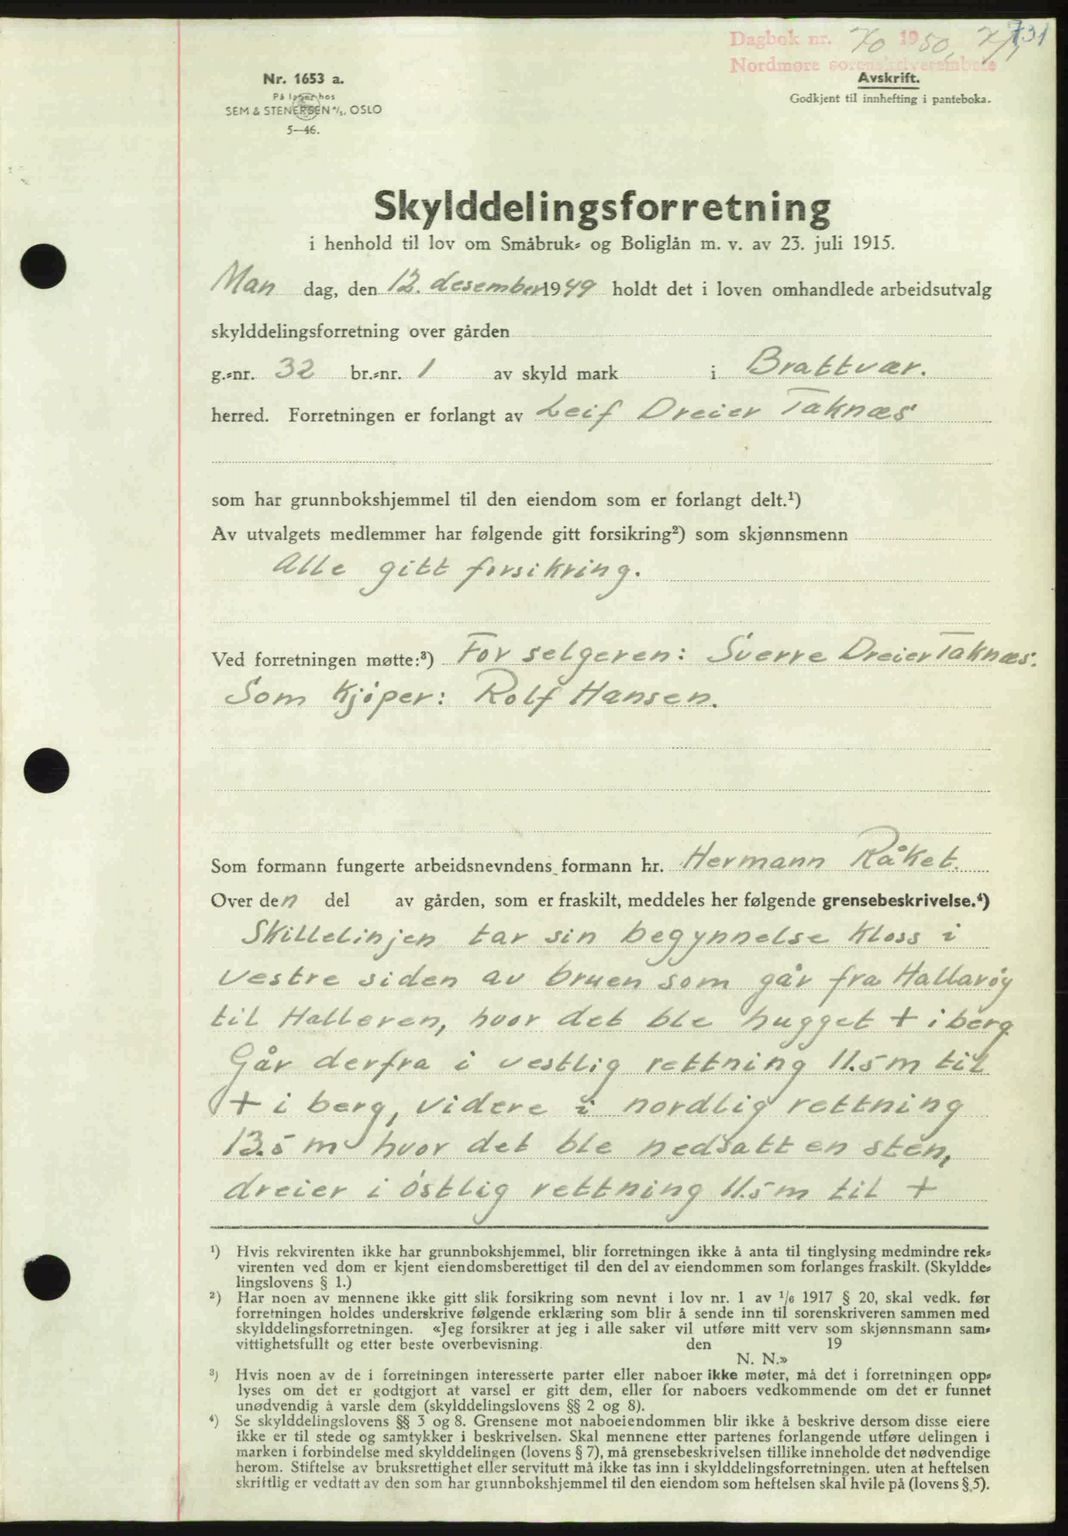 731
Dagbok nr. 70 1950, 7/1
Nordmøre sorenskriverembete
Nr. 1653 a.
På lager hos
SEM & STENERSEN A/S, OSLO
5—46.
Avskrift.
Godkjent til innhefting i panteboka.
Skylddelingsforretning
i henhold til lov om Småbruk- og Boliglån m. v. av 23. juli 1915.
Man dag, den 12. desember 1949 holdt det i loven omhandlede arbeidsutvalg
skylddelingsforretning over gården
g.-nr. 32 br.-nr. 1 av skyld mark i Brattvær.
herred. Forretningen er forlangt av Leif Dreier Taknæs
som har grunnbokshjemmel til den eiendom som er forlangt delt.¹)
Av utvalgets medlemmer har følgende gitt forsikring²) som skjønnsmenn
Alle gitt forsikring.
Ved forretningen møtte:³) For selgeren: Sverre Dreier Taknæs.
Som Kjøper: Rolf Hansen.
Som formann fungerte arbeidsnevndens formann hr. Hermann Råket.
Over den del av gården, som er fraskilt, meddeles her følgende grensebeskrivelse.⁴)
Skillelinjen tar sin begynnelse kloss i
vestre siden av bruen som går fra Hallarøy
til Halleren, hvor det ble hugget + i berg
Går derfra i vestlig rettning 11.5 m til
+ i berg, videre i nordlig rettning
13.5 m hvor det ble nedsatt en sten,
dreier i østlig rettning 11.5 m til +
¹) Hvis rekvirenten ikke har grunnbokshjemmel, blir forretningen ikke å anta til tinglysing medmindre rek-
virenten ved dom er kjent eiendomsberettiget til den del av eiendommen som forlanges fraskilt. (Skyldde-
lingslovens § 1.)
²) Har noen av mennene ikke gitt slik forsikring som nevnt i lov nr. 1 av 1/6 1917 § 20, skal vedk. før
forretningen holdes underskrive følgende erklæring som blir å sende inn til sorenskriveren sammen med
skylddelingsforretningen. «Jeg forsikrer at jeg i alle saker vil utføre mitt verv som skjønnsmann sam-
vittighetsfullt og etter beste overbevisning. den 19
N. N.»
³) Hvis noen av de i forretningen interesserte parter eller naboer ikke møter, må det i forretningen opp-
lyses om det er godtgjort at varsel er gitt dem, eller for naboers vedkommende om det er funnet
unødvendig å varsle dem (skylddelingslovens §§ 2 og 8).
⁴) Se skylddelingslovens §§ 3 og 8. Grensene mot naboeiendommen blir ikke å beskrive dersom disse eiere
ikke er til stede og samtykker i beskrivelsen. Skal mennene etter partenes forlangende utføre delingen i
marken i forbindelse med skylddelingen (lovens § 7), må grensebeskrivelsen tillike inneholde det nødvendige
herom. Stiftelse av bruksrettighet eller servitutt må ikke tas inn i skylddelingsforretningen, uten at heftelsen
skriftlig er vedtatt av den som har grunnbokshjemmel til den eiendom som heftelsen skal hvile på (lovens § 5).